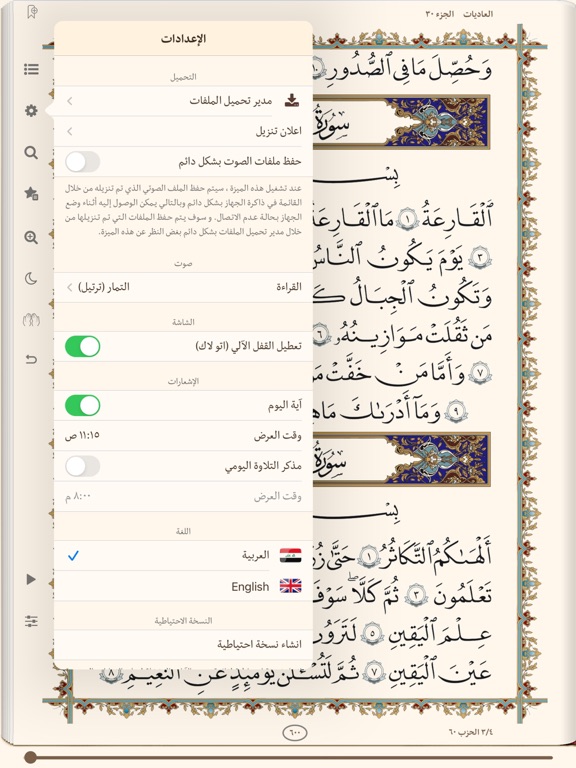 العاديات الجزء ٣٠
وَحُصِّلَ مَا فِي الصُّدُورِ ١٠
سُورَةُ
بِسْـ
الْقَارِعَةُ ١ مَا الْقَارِعَةُ
٣ يَوْمَ يَكُونُ النَّاسُ
وَتَكُونُ الْجِبَالُ كَـ
٦ مَن ثَقُلَتْ مَوَازِينُهُ
٧ وَأَمَّا مَنْ خَفَّتْ مَو
٩ وَمَا أَدْرَىٰكَ مَا هِيَـ
سُورَةُ
بِسْـ
أَلْهَىٰكُمُ التَّكَاثُرُ ١ حَتَّىٰ زُرْ
تَعْلَمُونَ ٣ ثُمَّ كَلَّا سَوْفَ
عِلْمَ الْيَقِينِ ٥ لَتَرَوُنَّ
عَيْنَ الْيَقِينِ ٧ ثُمَّ لَتُسْـَٔلُنَّ يَوْمَئِذٍ عَنِ النَّعِيمِ ٨
٣/٤ الحزب ٦٠
٦٠٠
الإعدادات
التحميل
مدير تحميل الملفات
اعلان تنزيل
حفظ ملفات الصوت بشكل دائم
عند تشغيل هذه الميزة ، سيتم حفظ الملف الصوتي الذي تم تنزيله من خلال
القائمة في ذاكرة الجهاز بشكل دائم وبالتالي يمكن الوصول إليه أثناء وضع
الجهاز بحالة عدم الاتصال. و سوف يتم حفظ الملفات التي تم تنزيلها من
خلال مدير تحميل الملفات بشكل دائم بغض النظر عن هذه الميزة.
صوت
القراءة التمار (ترتيل)
الشاشة
تعطيل القفل الآلي (اتو لاك)
الإشعارات
آية اليوم
وقت العرض ١١:١٥ ص
مذكر التلاوة اليومي
وقت العرض ٨:٠٠ م
اللغة
العربية
English
النسخة الاحتياطية
انشاء نسخة احتياطية